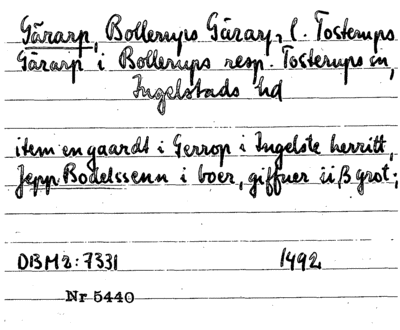 Gärarp, Bollerups Gärarp, l. Tosterups
Gärarp i Bollerups resp. Tosterups sn,
Ingelstads hd
item en gaardt i Gerrop i Ingelste herritt,
Jepp Bodelssenn i boer, giffuer ii ß grot;
DBM 2:7331 1492
Nr 5440